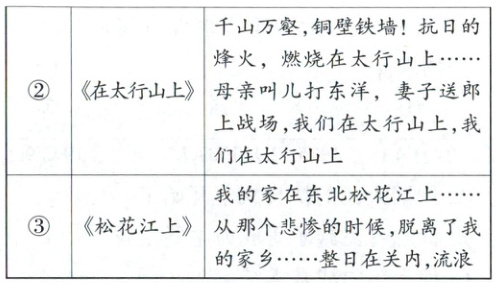 ②
《在太行山上》
千山万壑,铜壁铁墙！抗日的
烽火，燃烧在太行山上……
母亲叫儿打东洋，妻子送郎
上战场,我们在太行山上,我
们在太行山上
③
《松花江上》
我的家在东北松花江上……
从那个悲惨的时候,脱离了我
的家乡……整日在关内,流浪